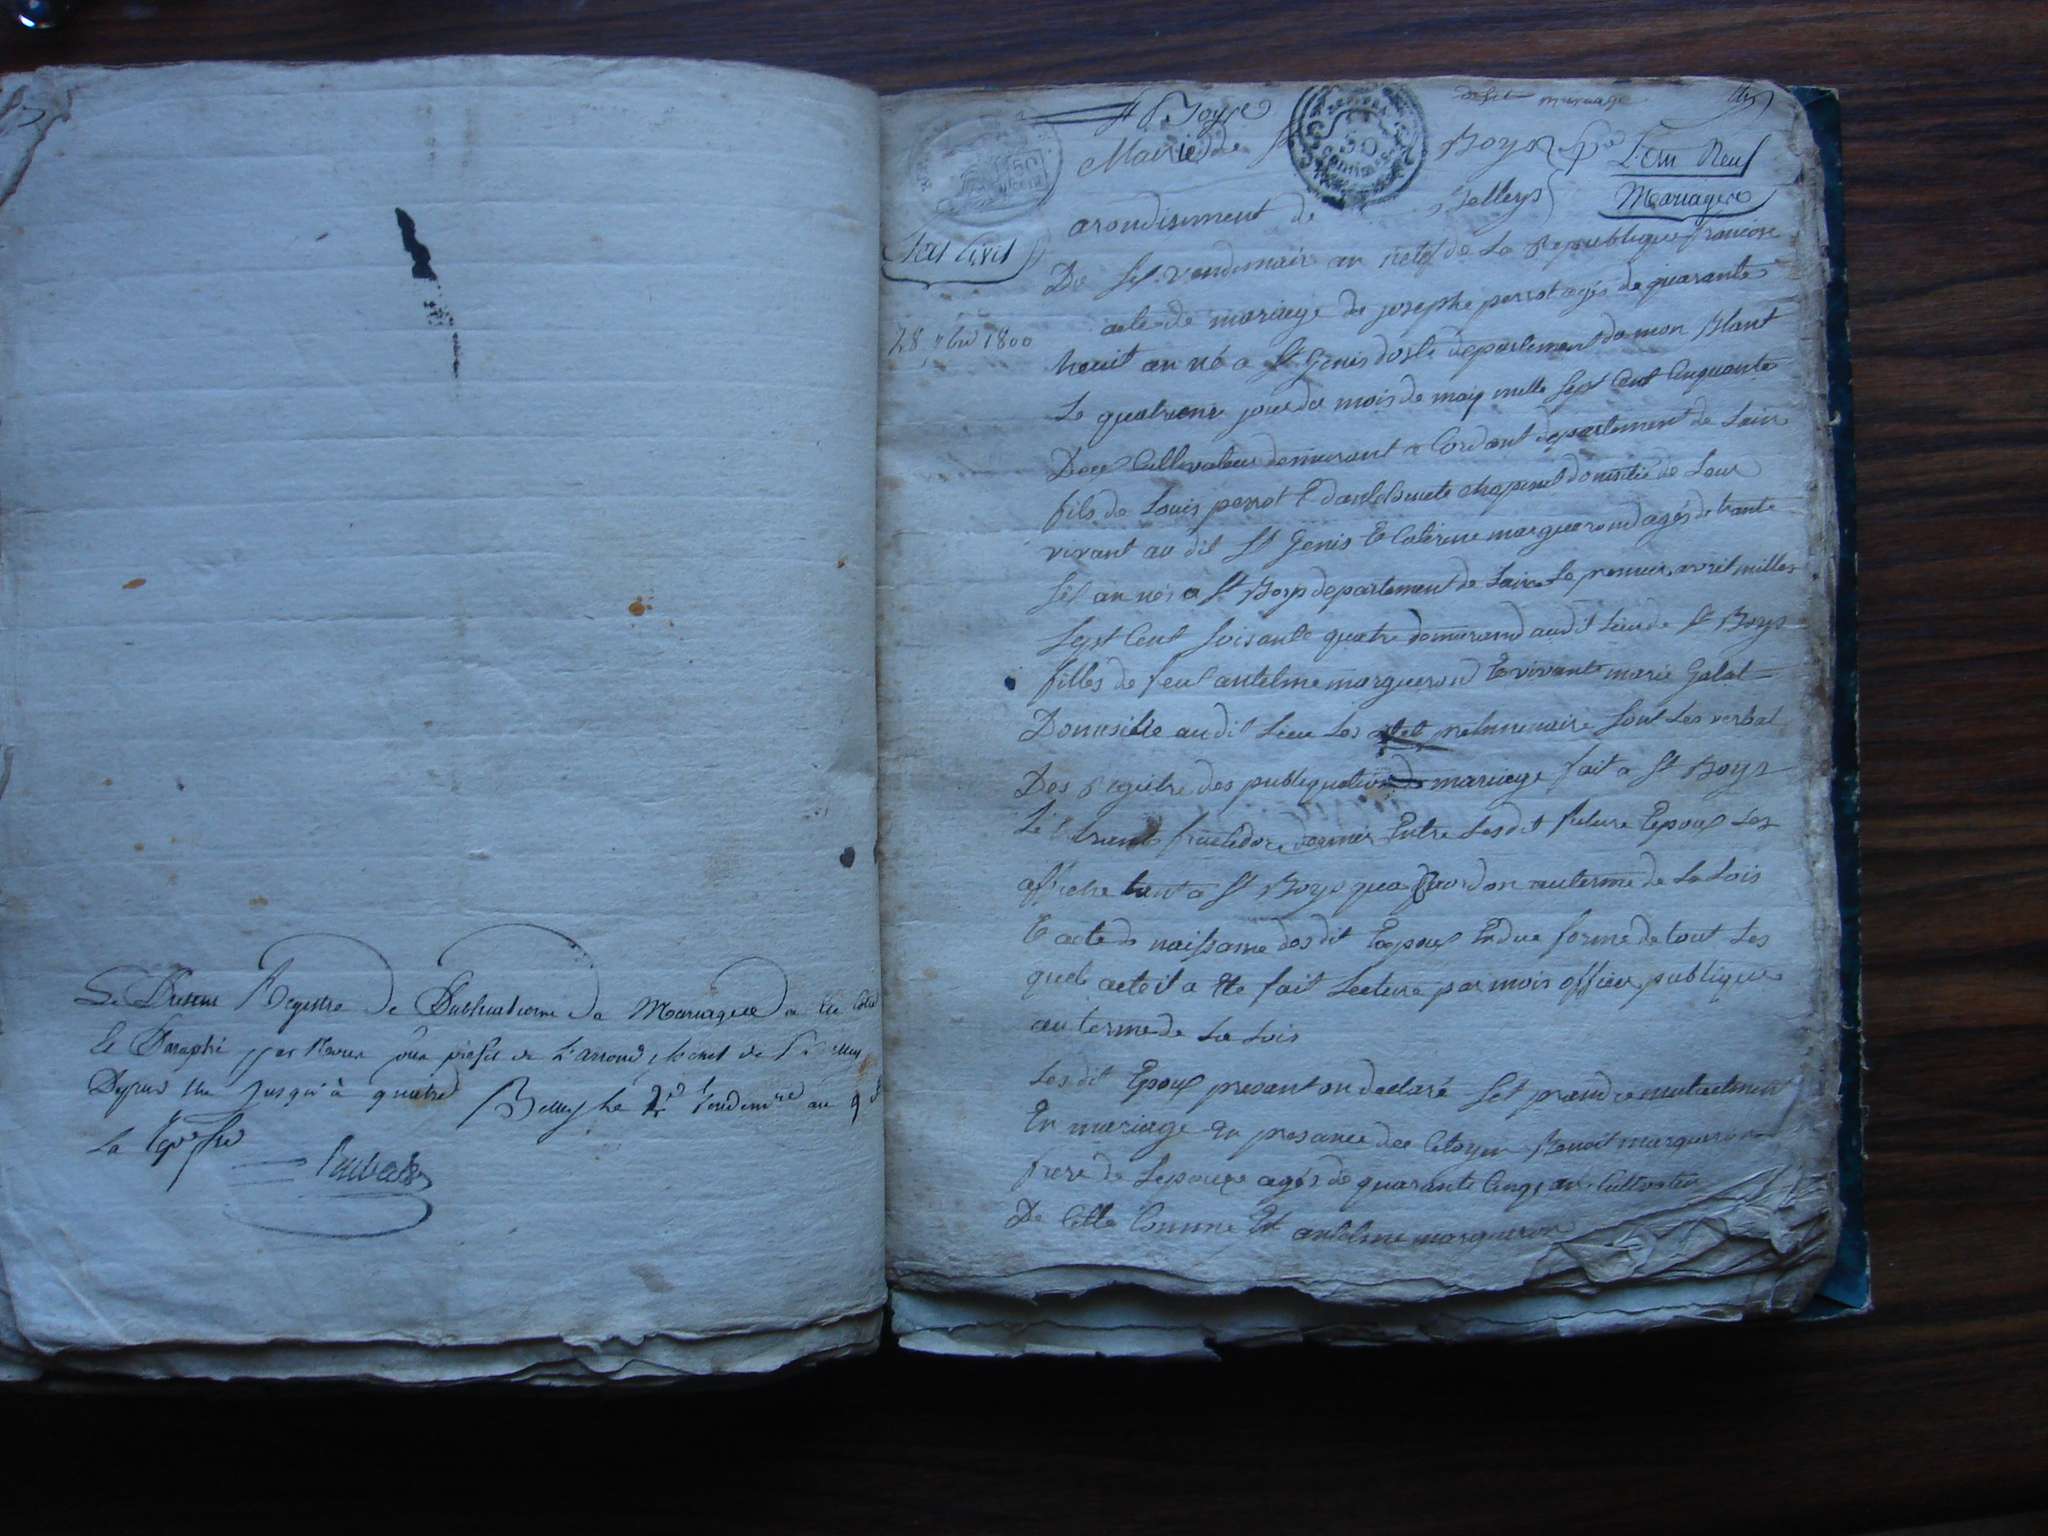 Le Present Registre de Publications de Mariages a été Coté
Et Paraphé par Nous sous préfet de L'arrond.
Depuis un jusqu'à quatre Belley le 2d Vendemre an 9
La Repe fse
St Boys
Mairie de St Boys
L'an Neuf
Mariages
50
arondisement de Belleys
Etat Civil
Du Set. Vendemair an neuf de La Republique francoise
28 7bre 1800
acte de mariage de josephe perrot agés de quarante
heuit an né a St Genis dosle departement du mon Blant
Le quatrieme jour du mois de may mille Sept Cent Cinquante
Deux Cultivateur demeurant a Cordont departement de Lain
fils de Louis perrot Et domisilié de Leur
vivant au dit St Genis Et Caterine marguerond agés de trante
Sis an nés a St Boys departement de Lain Le premier avril mille
Sept Cent Soisante quatre demeurand audit Lieu de St Boys
filles de feut antelme marguerond Et vivante marie Galat
Domisilie audit Lieu Les actet preliminaire Sont Les verbal
Des Registre des publiquation de mariage fait a St Boys
Le trante fructidore dernier Entre Lesdit future Epoux Les
affiche tant a St Boys qua Cordon au terme de La Lois
Et acte de naissance desdit Epoux En due forme de tout Les
quels acte il a Ete fait Lecture par mois officier publique
au terme de La Lois
Les dit Epoux presant on declaré Set prandre mutuelment
En mariage En presance des Citoyen Benoit marguerond
frere de Lepouse agés de quarante Cinq an Cultivateur
De Cette Commune Et antelme marguerond